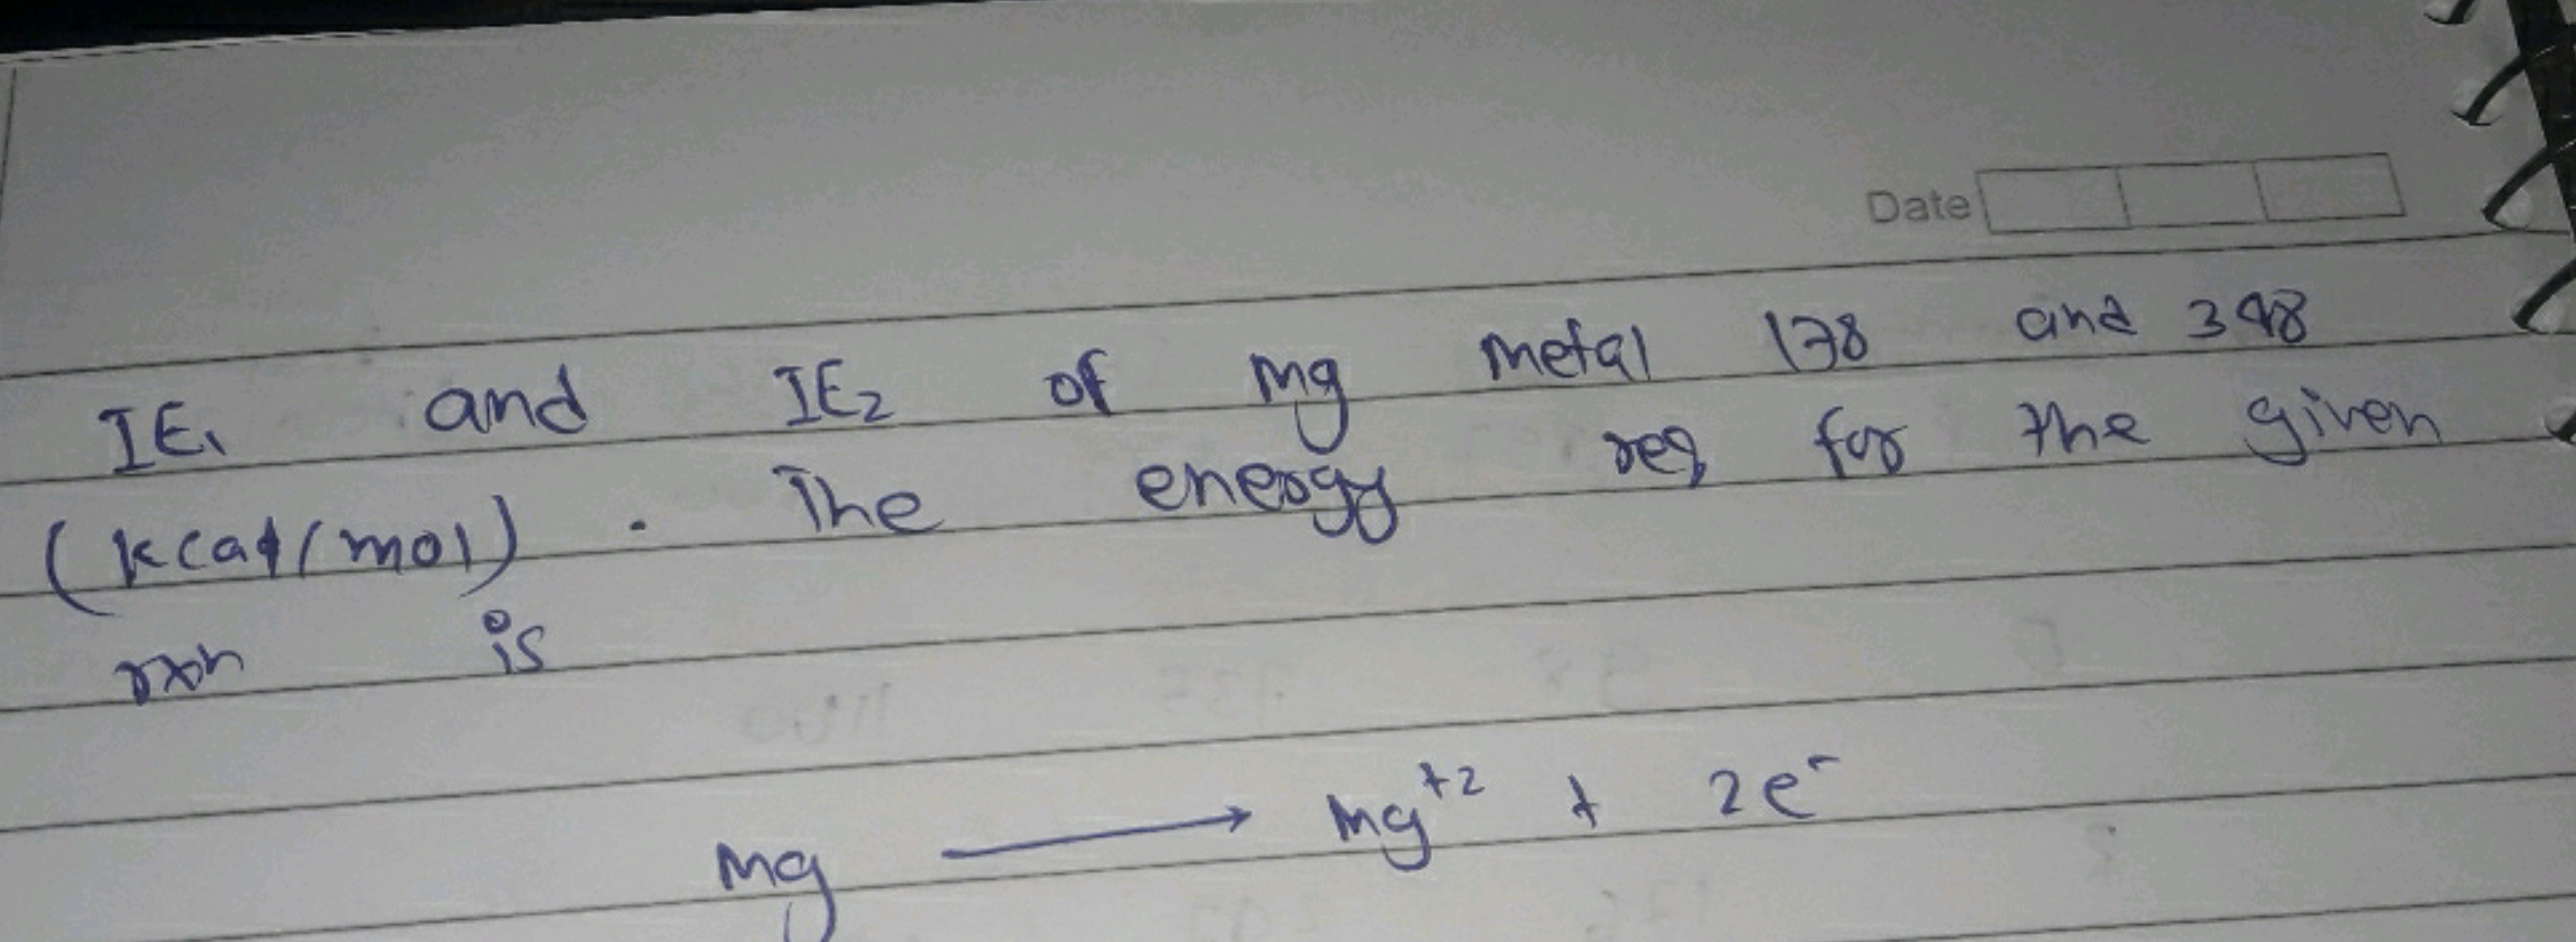 Date
IE₁ and IE₂ of Mg Metal 178 and 348
(kcal/mol). The energy req for the given
rxn is
Mg ⟶ Mg⁺² + 2e⁻